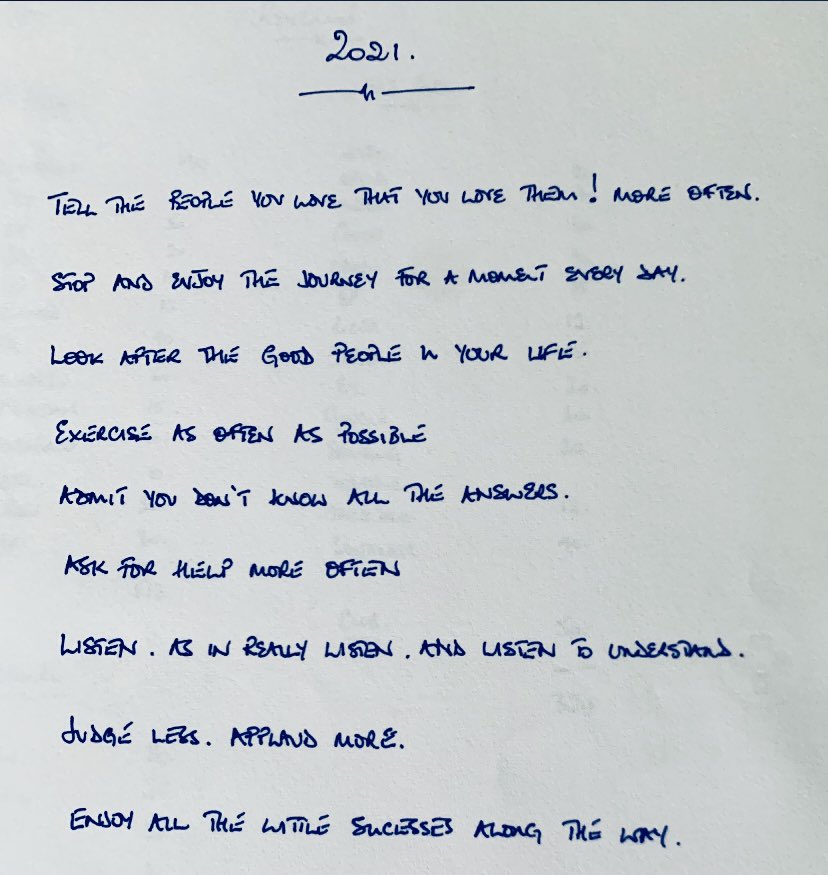 2021.
TELL THE PEOPLE YOU LOVE THAT YOU LOVE THEM! MORE OFTEN.
STOP AND ENJOY THE JOURNEY FOR A MOMENT EVERY DAY.
LOOK AFTER THE GOOD PEOPLE IN YOUR LIFE.
EXERCISE AS OFTEN AS POSSIBLE
ADMIT YOU DON'T KNOW ALL THE ANSWERS.
ASK FOR HELP MORE OFTEN
LISTEN. AS IN REALLY LISTEN. AND LISTEN TO UNDERSTAND.
JUDGE LESS. APPLAUD MORE.
ENJOY ALL THE LITTLE SUCCESSES ALONG THE WAY.